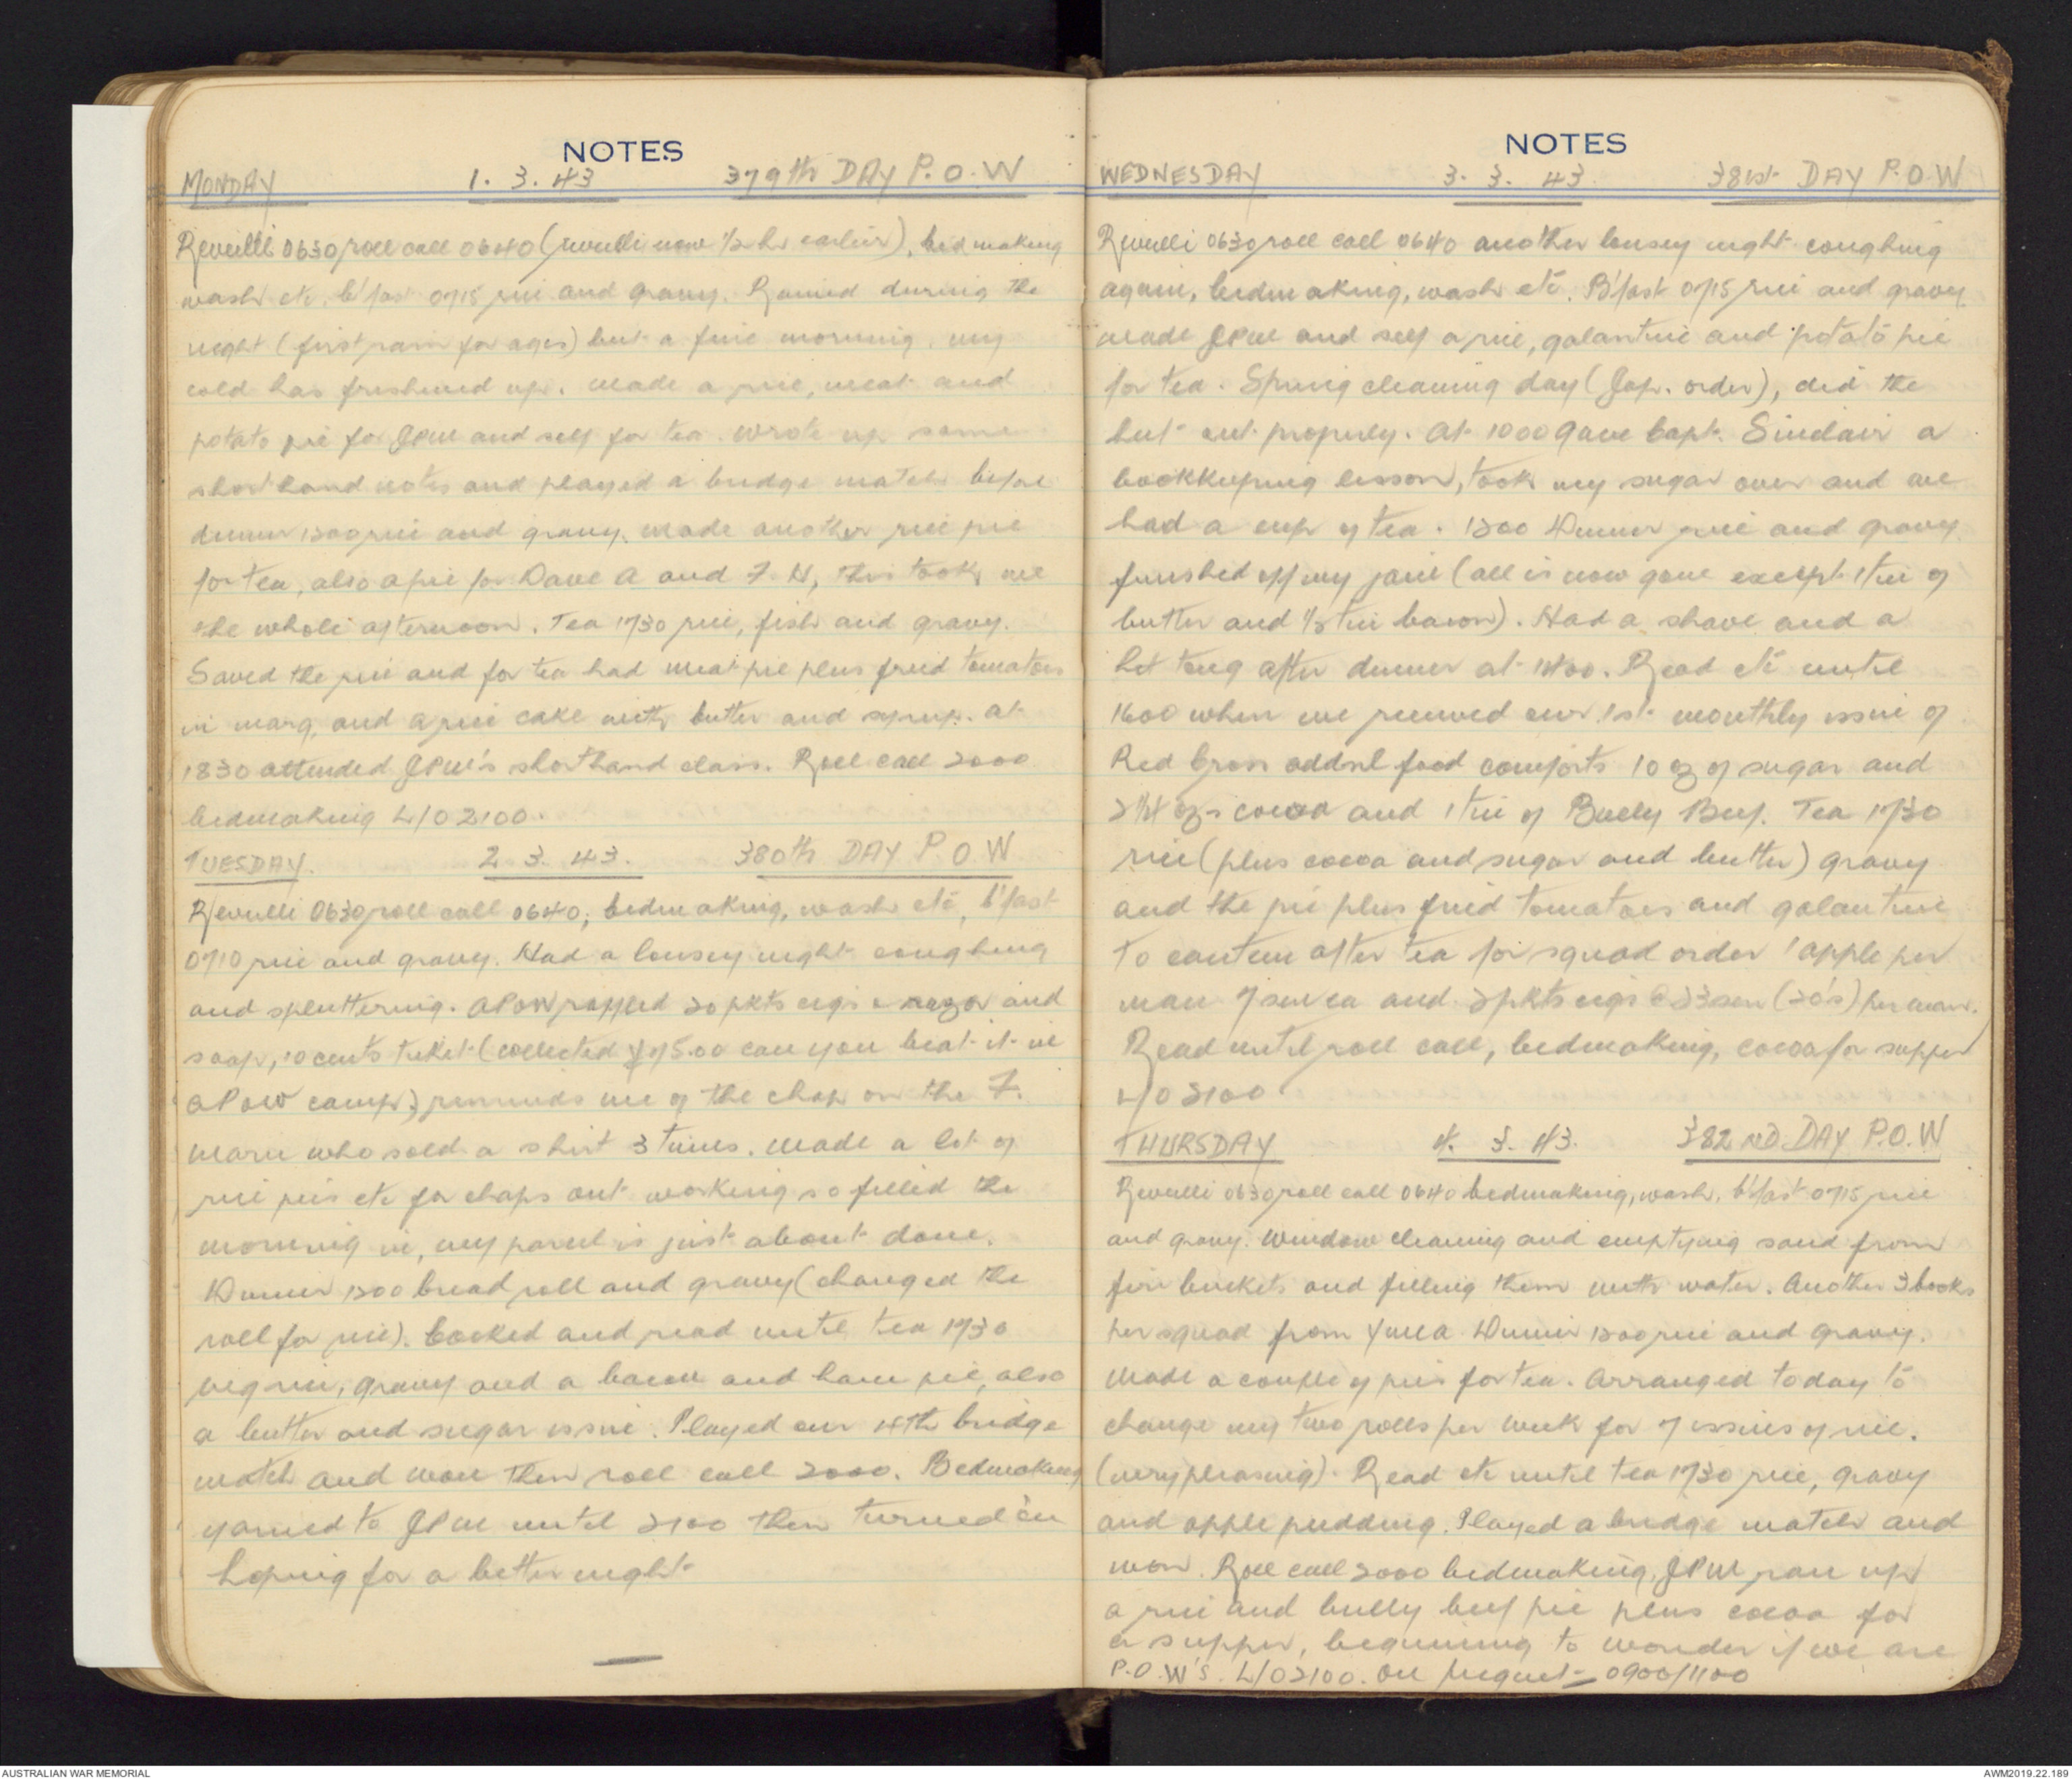 NOTES
MONDAY 1. 3. 43 379th DAY P.O.W
Reveilli 0630 roll call 0640 (reveilli now 1/2 hr earlier), bedmaking
wash etc, b'fast 0715 rice and gravy. Rained during the
night (first rain for ages) but a fine morning, my
cold has freshened up. Made a rice, meat and
potato pie for JPW and self for tea. Wrote up some
shorthand notes and played a bridge match before
dinner 1200 rice and gravy, made another rice pie
for tea, also a pie for Dave A and F. H, this took me
the whole afternoon. Tea 1730 rice, fish and gravy.
Saved the rice and for tea had meat pie plus fried tomatoes
in marg, and a rice cake with butter and syrup. At
1830 attended JPW's shorthand class. Roll call 2000
bedmaking L/O 2100.
TUESDAY. 2. 3. 43. 380th DAY P.O.W
Reveilli 0630 roll call 0640, bedmaking, wash etc, b'fast
0710 rice and gravy. Had a lousey night coughing
and spluttering. A POW raffled 20 pkts cigs a razor and
soap, 10 cents ticket (collected ¥75.00 can you beat it in
a POW camp) reminds me of the chap on the F.
Maru who sold a shirt 3 times. Made a lot of
rice pies etc for chaps out working so filled the
morning in, my parcel is just about done.
Dinner 1200 bread roll and gravy (changed the
roll for rice). Cooked and read until tea 1730
veg rice, gravy and a bacon and ham pie, also
a butter and sugar issue. Played our 4th bridge
match and won then roll call 2000. Bedmaking
yarned to JPW until 2100 then turned in
hoping for a better night
NOTES
WEDNESDAY 3. 3. 43. 381st DAY P.O.W
Reveilli 0630 roll call 0640 another lousey night coughing
again, bedmaking, wash etc. B'fast 0715 rice and gravy.
Made JPW and self a rice, galantine and potato pie
for tea. Spring cleaning day (Jap. order), did the
hut out properly. At 1000 gave Capt. Sinclair a
bookkeeping lesson, took my sugar over and we
had a cup of tea. 1200 Dinner rice and gravy
finished off my jam (all is now gone except 1 tin of
butter and 1/2 tin bacon). Had a shave and a
hot tong after dinner at 1400. Read etc until
1600 when we received our 1st monthly issue of
Red Cross addnl food comforts 10 oz of sugar and
2 1/4 ozs cocoa and 1 tin of Bully Beef. Tea 1730
rice (plus cocoa and sugar and butter) gravy
and the pie plus fried tomatoes and galantine
To canteen after tea for squad order 1 apple per
man 7 sen ea and 2 pkts cigs @ 23 sen (20's) per man.
Read until roll call, bedmaking, cocoa for supper
L/O 2100.
THURSDAY 4. 3. 43. 382ND DAY P.O.W
Reveilli 0630 roll call 0640 bedmaking, wash, b'fast 0715 rice
and gravy. Window cleaning and emptying sand from
fire buckets and filling them with water. Another 3 books
per squad from YMCA. Dinner 1200 rice and gravy.
Made a couple of pies for tea. Arranged today to
change my two rolls per week for 7 issues of rice.
(very pleasing). Read etc until tea 1730 rice, gravy
and apple pudding. Played a bridge match and
won. Roll call 2000 bedmaking, JPW ran up
a rice and bully beef pie plus cocoa for
a supper, beginning to wonder if we are
P.O.W's. L/O 2100. On picquet - 0900/1100
AUSTRALIAN WAR MEMORIAL
AWM2019.22.189